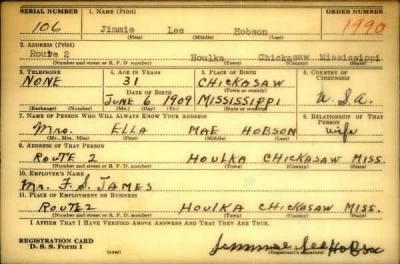 SERIAL NUMBER 1. NAME (Print) ORDER NUMBER
106 Jimmie Lee Hobson 1990
(First) (Middle) (Last)
2. ADDRESS (Print)
Route 2 Houlka Chickasaw Mississippi
(Number and street or R. F. D. number) (Town) (County) (State)
3. TELEPHONE 4. AGE IN YEARS 5. PLACE OF BIRTH 6. COUNTRY OF CITIZENSHIP
NONE 31 CHICKASAW
DATE OF BIRTH (Town or county)
JUNE 6 1909 MISSISSIPPI U.S.A.
(Exchange) (Number) (Mo.) (Day) (Yr.) (State or country)
7. NAME OF PERSON WHO WILL ALWAYS KNOW YOUR ADDRESS 8. RELATIONSHIP OF THAT PERSON
Mrs. ELLA MAE HOBSON wife
(Mr., Mrs., Miss) (First) (Middle) (Last)
9. ADDRESS OF THAT PERSON
ROUTE 2 HOULKA CHICKASAW MISS.
(Number and street or R. F. D. number) (Town) (County) (State)
10. EMPLOYER'S NAME
Mr. F. S. JAMES
11. PLACE OF EMPLOYMENT OR BUSINESS
ROUTE 2 HOULKA CHICKASAW MISS.
(Number and street or R. F. D. number) (Town) (County) (State)
I AFFIRM THAT I HAVE VERIFIED ABOVE ANSWERS AND THAT THEY ARE TRUE.
REGISTRATION CARD
D. S. S. Form 1 Jimmie Lee Hobson